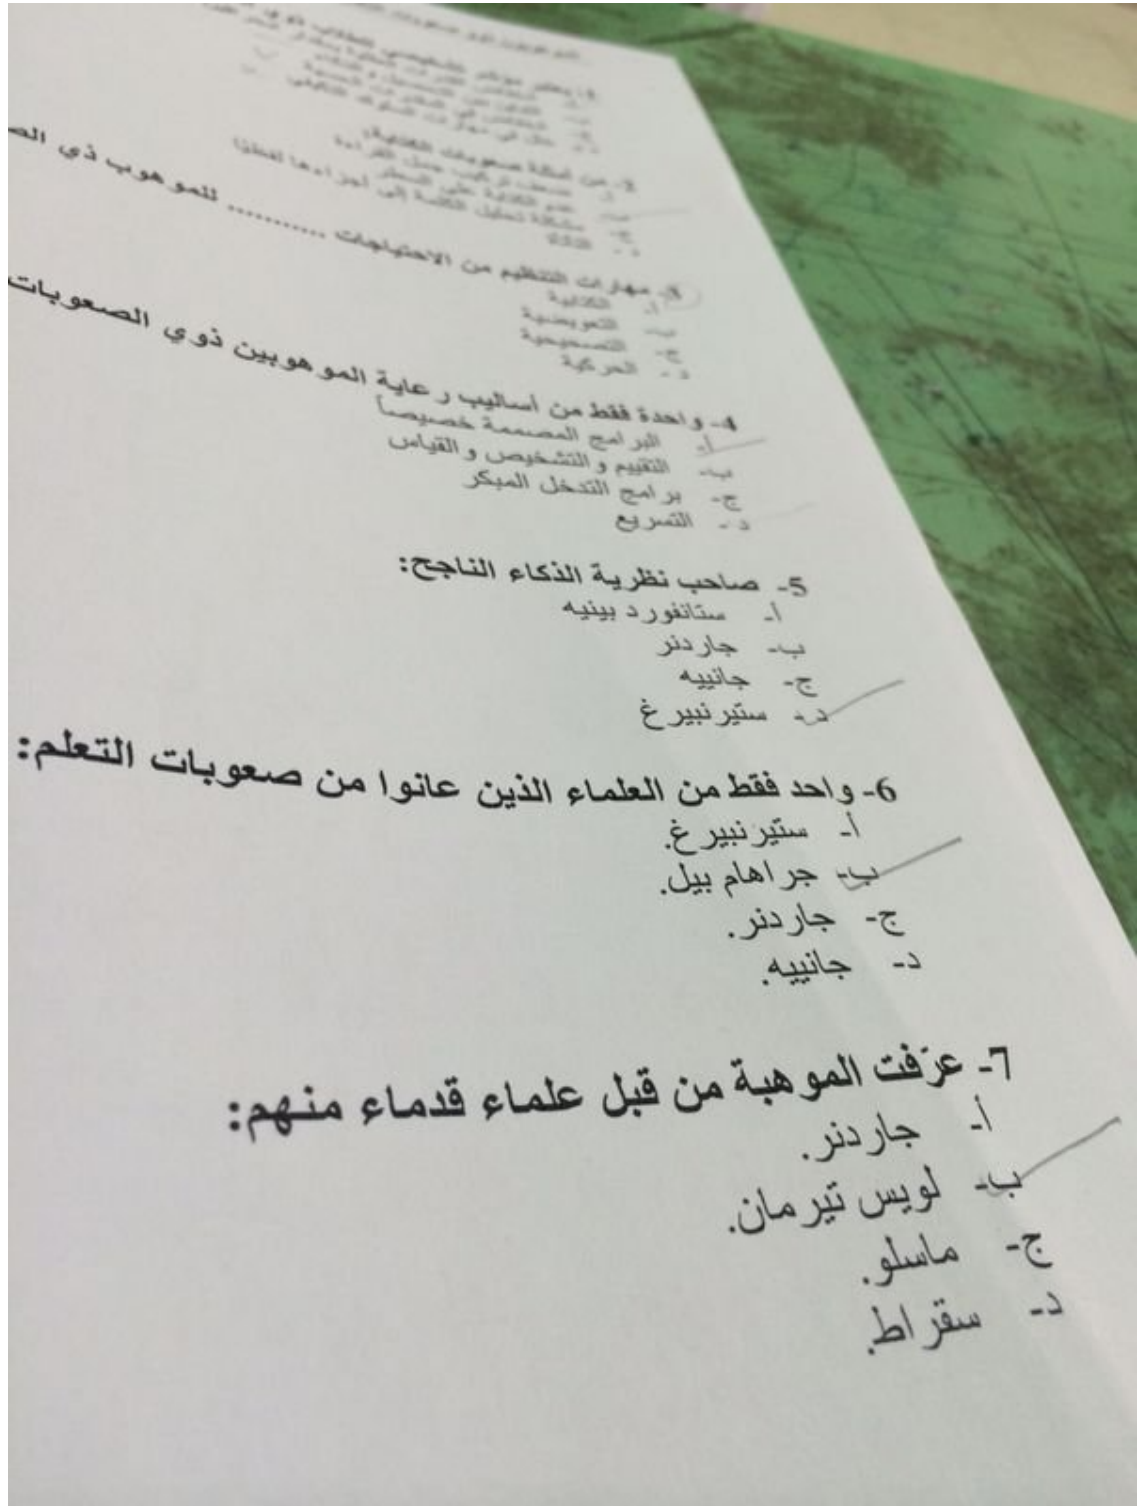 2- من أمثلة صعوبات الكتابة:
أ- ضعف تركيب جمل القراءة
ب- عدم الكتابة على السطر
ج- مشكلة تحليل الكلمة إلى أجزاءها لفظيا
د-
3- مهارات التنظيم من الاحتياجات ........... للموهوب ذي
أ- الكتابية
ب- التعويضية
ج- التصحيحية
د- الحركية
4- واحدة فقط من أساليب رعاية الموهوبين ذوي الصعوبات
أ- البرامج المصممة خصيصاً
ب- التقييم والتشخيص والقياس
ج- برامج التدخل المبكر
د- التسريع
5- صاحب نظرية الذكاء الناجح:
أ- ستانفورد بينيه
ب- جاردنر
ج- جانييه
د- ستيرنبيرغ
6- واحد فقط من العلماء الذين عانوا من صعوبات التعلم:
أ- ستيرنبيرغ.
ب- جراهام بيل.
ج- جاردنر.
د- جانييه.
7- عرّفت الموهبة من قبل علماء قدماء منهم:
أ- جاردنر.
ب- لويس تيرمان.
ج- ماسلو.
د- سقراط.